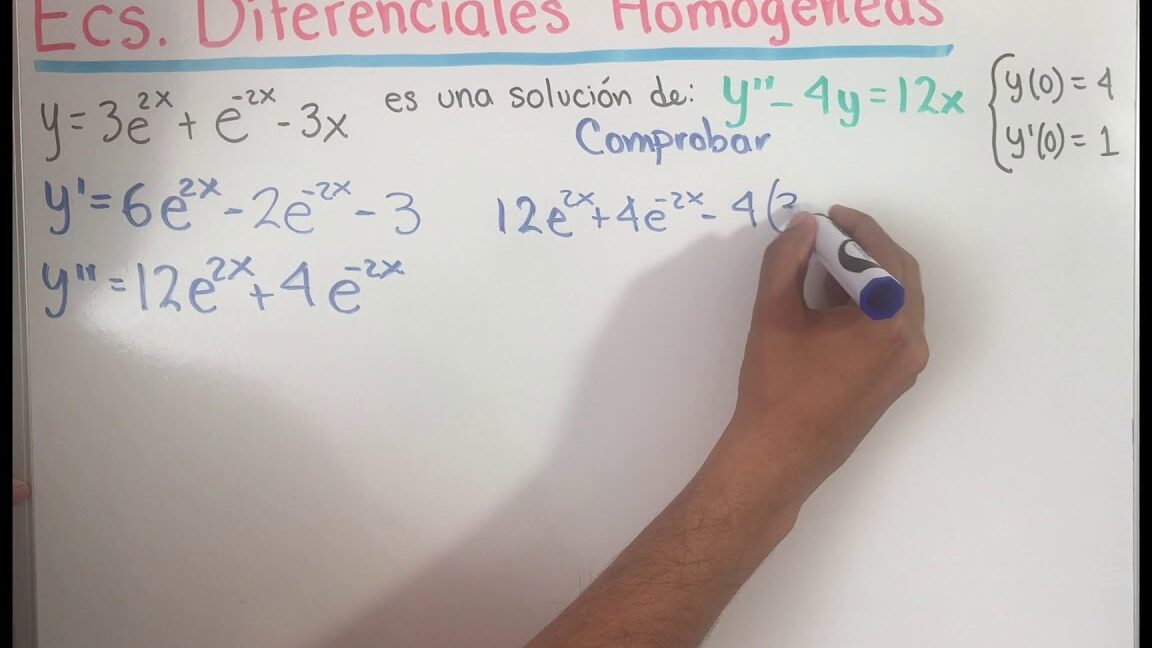 Ecs. Diferenciales Homogéneas
y = 3e^{2x} + e^{-2x} - 3x es una solución de: y'' - 4y = 12x { y(0) = 4
y'(0) = 1
Comprobar
y' = 6e^{2x} - 2e^{-2x} - 3
12e^{2x} + 4e^{-2x} - 4(
y'' = 12e^{2x} + 4e^{-2x}